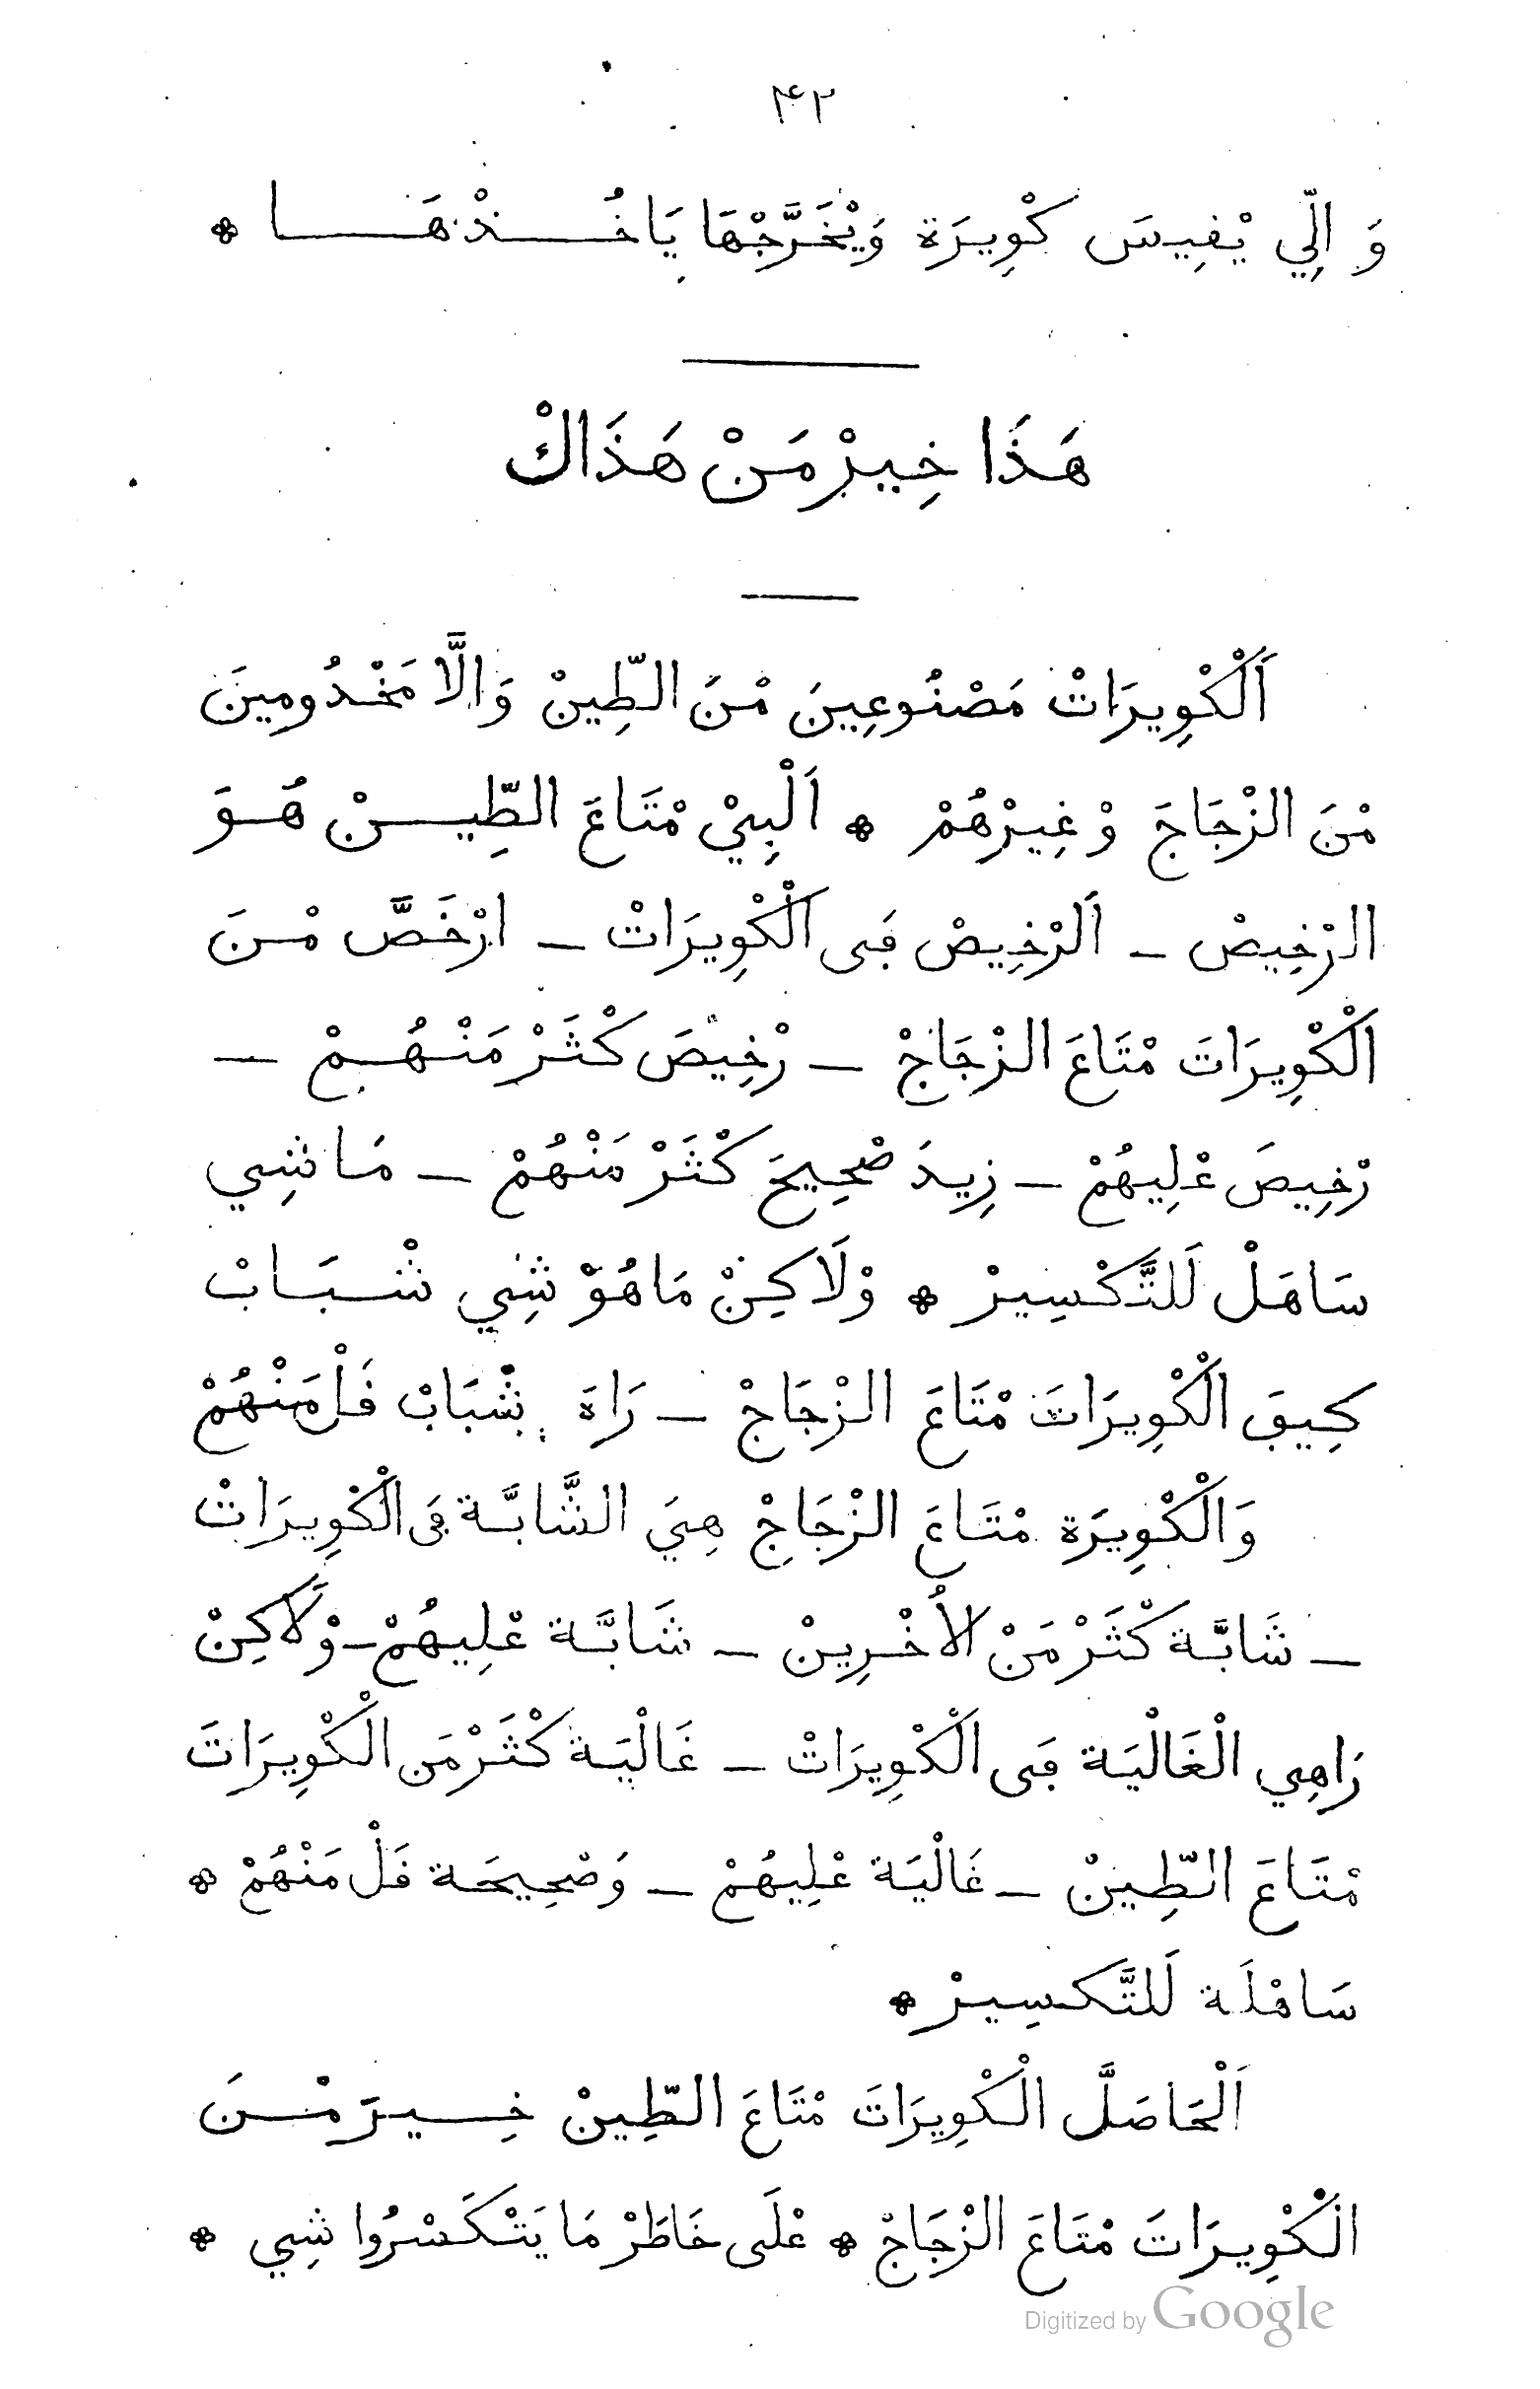 ۴۲
وَ اِلِّي يْفِيسَ كْوِيرَة وَيْخَرَّجْهَا يَاخُذْهَا *
هَذَا خِيرْ مَنْ هَذَاكْ
اَلْكْوِيرَاتْ مَصْنُوعِينَ مْنَ الطِّينْ وَالَّا مَخْدُومِينَ
مْنَ الزْجَاجَ وْغِيرْهُمْ * اَلْبِيْ مْتَاعَ الطِّيـنْ هُوَ
الرْخِيصْ — اَلرْخِيصْ ڢَى الْكْوِيرَاتْ — ارْخَصَّ مْنَ
الْكْوِيرَاتَ مْتَاعَ الزْجَاجْ — رْخِيصَ كْثَرْ مَنْهُمْ —
رْخِيصَ عْلِيهُمْ — زِيدَ صْحِيحَ كْثَرْ مَنْهُمْ — مَاشِي
سَاهَلْ لَلتَّكْسِيرْ * وْلَاكِنْ مَاهُوّ شِي شْبَابْ
كِيڢَ الْكْوِيرَاتَ مْتَاعَ الزْجَاجْ — رَاهَ بْشْبَابْ فَلْ مَنْهُمْ
وَالْكْوِيرَة مْتَاعَ الزْجَاجْ هِيَ الشَّابَّة ڢَى الْكْوِيرَاتْ
— شَابَّة كْثَرْ مَنْ الأُخْرِينْ — شَابَّة عْلِيهُمْ — وْلَاكِنْ
رَاهِي الْغَالْيَة ڢَى الْكْوِيرَاتْ — غَالْيَة كْثَرْ مَن الْكْوِيرَاتَ
مْتَاعَ الطِّينْ — غَالْيَة عْلِيهُمْ — وَصْحِيحَة فَلْ مَنْهُمْ *
سَاهْلَة لَلتَّكسِيرْ *
اَلْحَاصَلَّ الْكْوِيرَاتَ مْتَاعَ الطِّينْ خِيرَ مْنَ
الْكْوِيرَاتَ مْتَاعَ الزْجَاجْ * عْلَى خَاطَرْ مَا يَتْكَسْرُوا شِي *
Digitized by Google